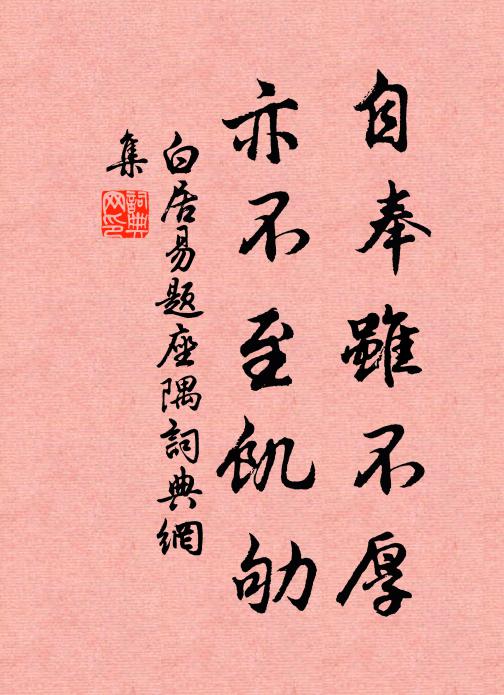 自奉雖不厚
亦不至飢劬
白居易題座隅詞典網
集
詞典
网印